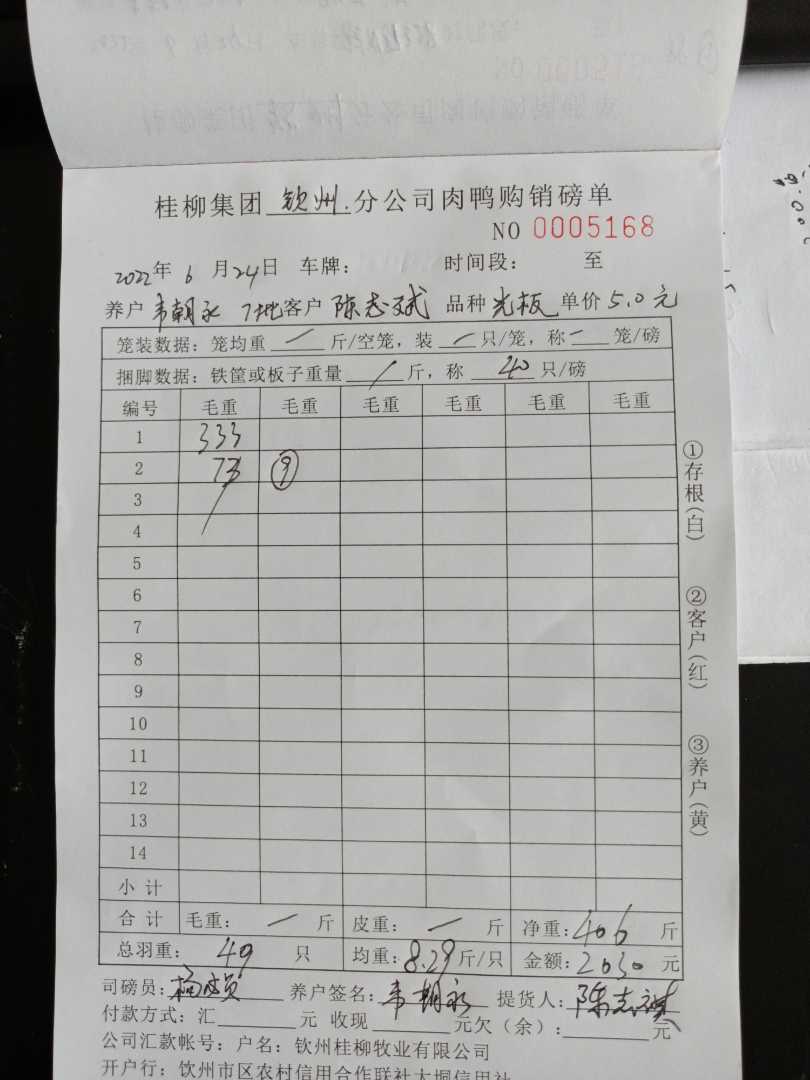 桂柳集团 钦州 分公司肉鸭购销磅单
NO 0005168
2022年 6 月24日 车牌: 时间段: 至
养户 韦朝永 7批客户 陈志斌 品种 光板 单价 5.0 元
笼装数据: 笼均重 / 斤/空笼, 装 / 只/笼, 称 / 笼/磅
捆脚数据: 铁筐或板子重量 / 斤, 称 40 只/磅
编号 毛重 毛重 毛重 毛重 毛重 毛重
1 333
2 73 ⑨
3
4
5
6
7
8
9
10
11
12
13
14
小计
合计 毛重: / 斤 皮重: / 斤 净重: 406 斤
总羽重: 49 只 均重: 8.29 斤/只 金额: 2030 元
司磅员: 养户签名: 韦朝永 提货人: 陈志斌
付款方式: 汇 元 收现 元欠(余): 元
公司汇款帐号: 户名: 钦州桂柳牧业有限公司
开户行: 钦州市区农村信用合作联社大垌信用社
①存根(白)
②客户(红)
③养户(黄)